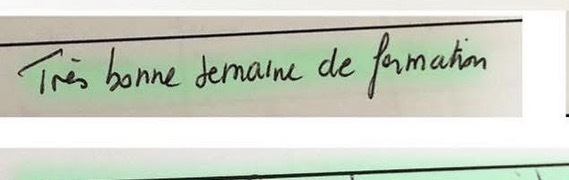 Très bonne semaine de formation